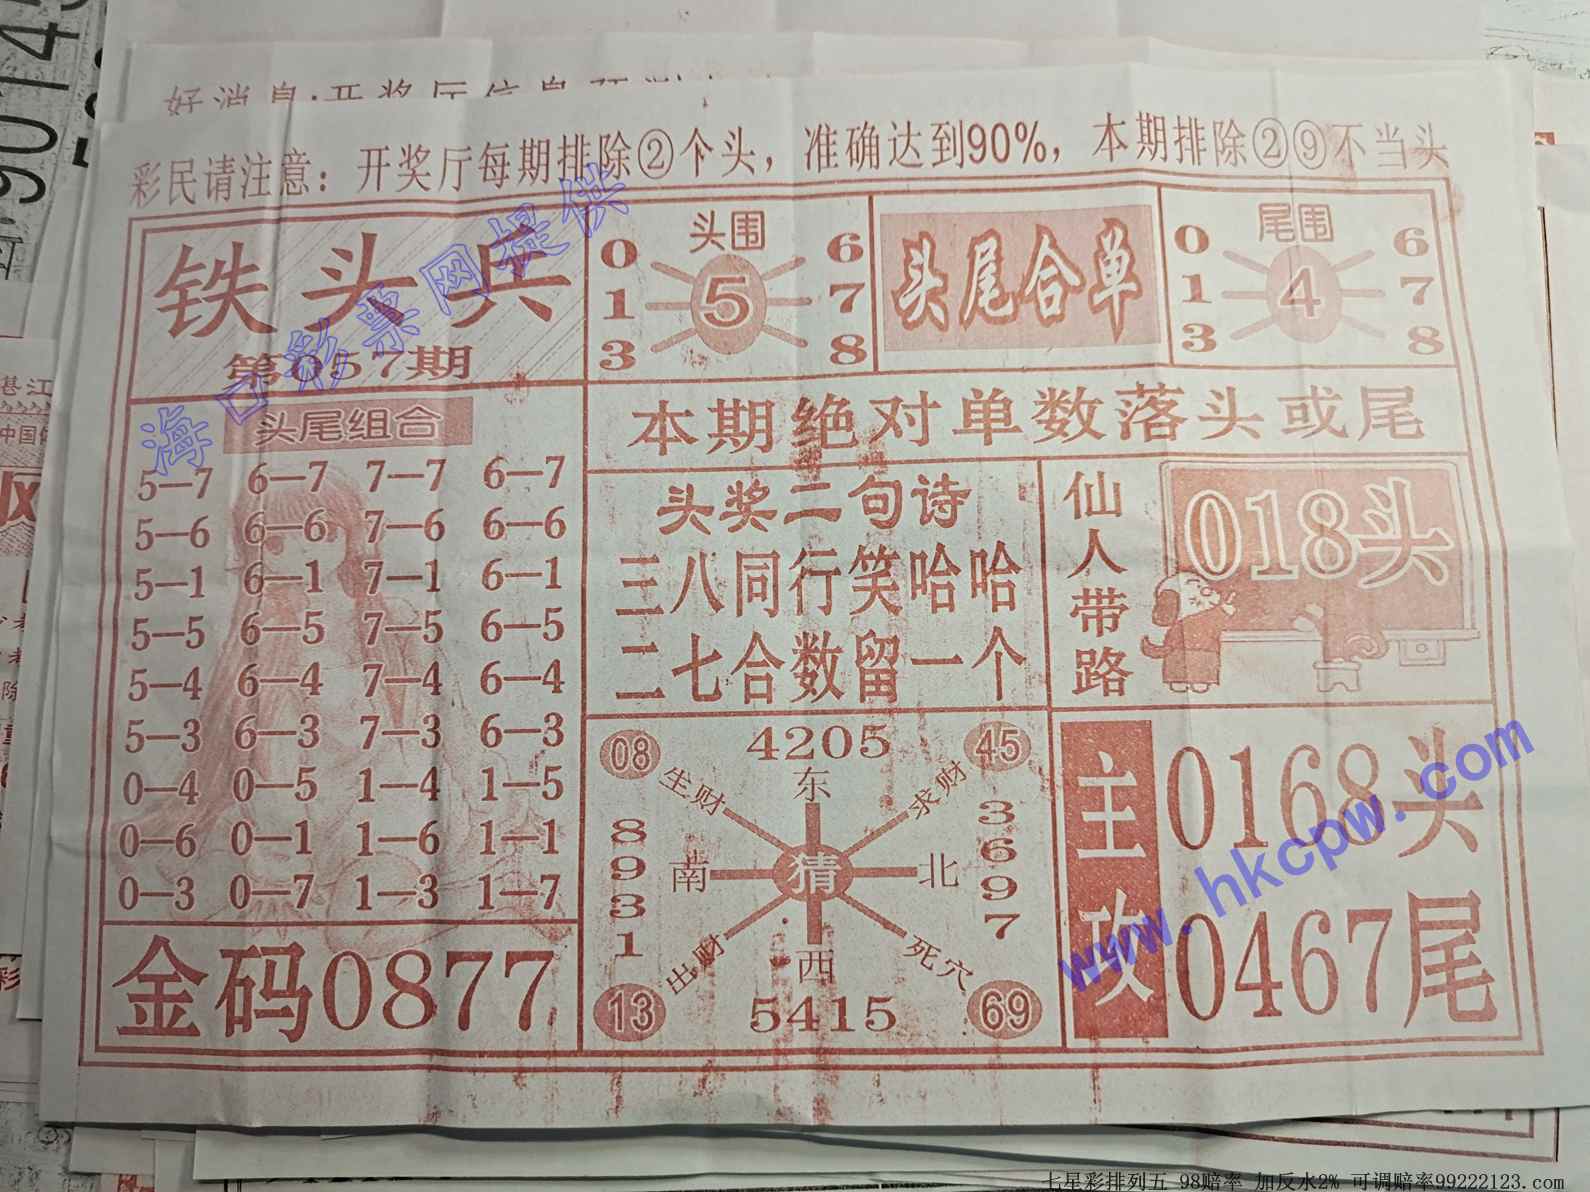 彩民请注意：开奖厅每期排除②个头，准确达到90%，本期排除②⑨不当头
铁头兵
第057期
头围
0 6
1 5 7
3 8
头尾合单
尾围
0 6
1 4 7
3 8
本期绝对单数落头或尾
头尾组合
5—7 6—7 7—7 6—7
5—6 6—6 7—6 6—6
5—1 6—1 7—1 6—1
5—5 6—5 7—5 6—5
5—4 6—4 7—4 6—4
5—3 6—3 7—3 6—3
0—4 0—5 1—4 1—5
0—6 0—1 1—6 1—1
0—3 0—7 1—3 1—7
金码0877
头奖二句诗
三八同行笑哈哈
二七合数留一个
仙人带路
018头
08 4205 45
生财 东 求财
8931
南 猜 北
3697
出财 西 死穴
13 5415 69
主攻
0168头
0467尾
海口彩票网提供
www.hkcpw.com
七星彩排列五 98赔率 加反水2% 可调赔率99222123.com